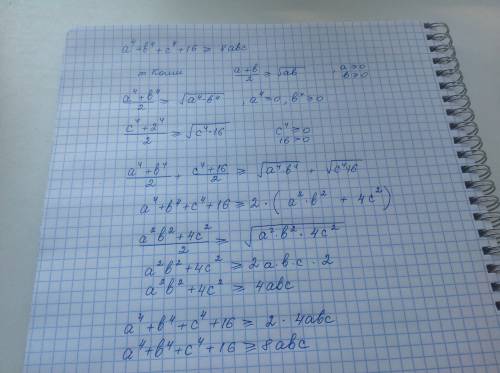 a⁴+b⁴+c⁴+16 ≥ 8abc
т Коши a+b/2 ≥ √ab , a≥0 b≥0
a⁴+b⁴/2 ≥ √a⁴·b⁴ , a⁴≥0, b⁴≥0
c⁴+2⁴/2 ≥ √c⁴·16 c⁴≥0 16>0
a⁴+b⁴/2 + c⁴+16/2 ≥ √a⁴·b⁴ + √c⁴·16
a⁴+b⁴+c⁴+16 ≥ 2·(a²·b² + 4c²)
a²b²+4c²/2 ≥ √a²·b²·4c²
a²b²+4c² ≥ 2a·b·c·2
a²b²+4c² ≥ 4abc
a⁴+b⁴+c⁴+16 ≥ 2·4abc
a⁴+b⁴+c⁴+16 ≥ 8abc